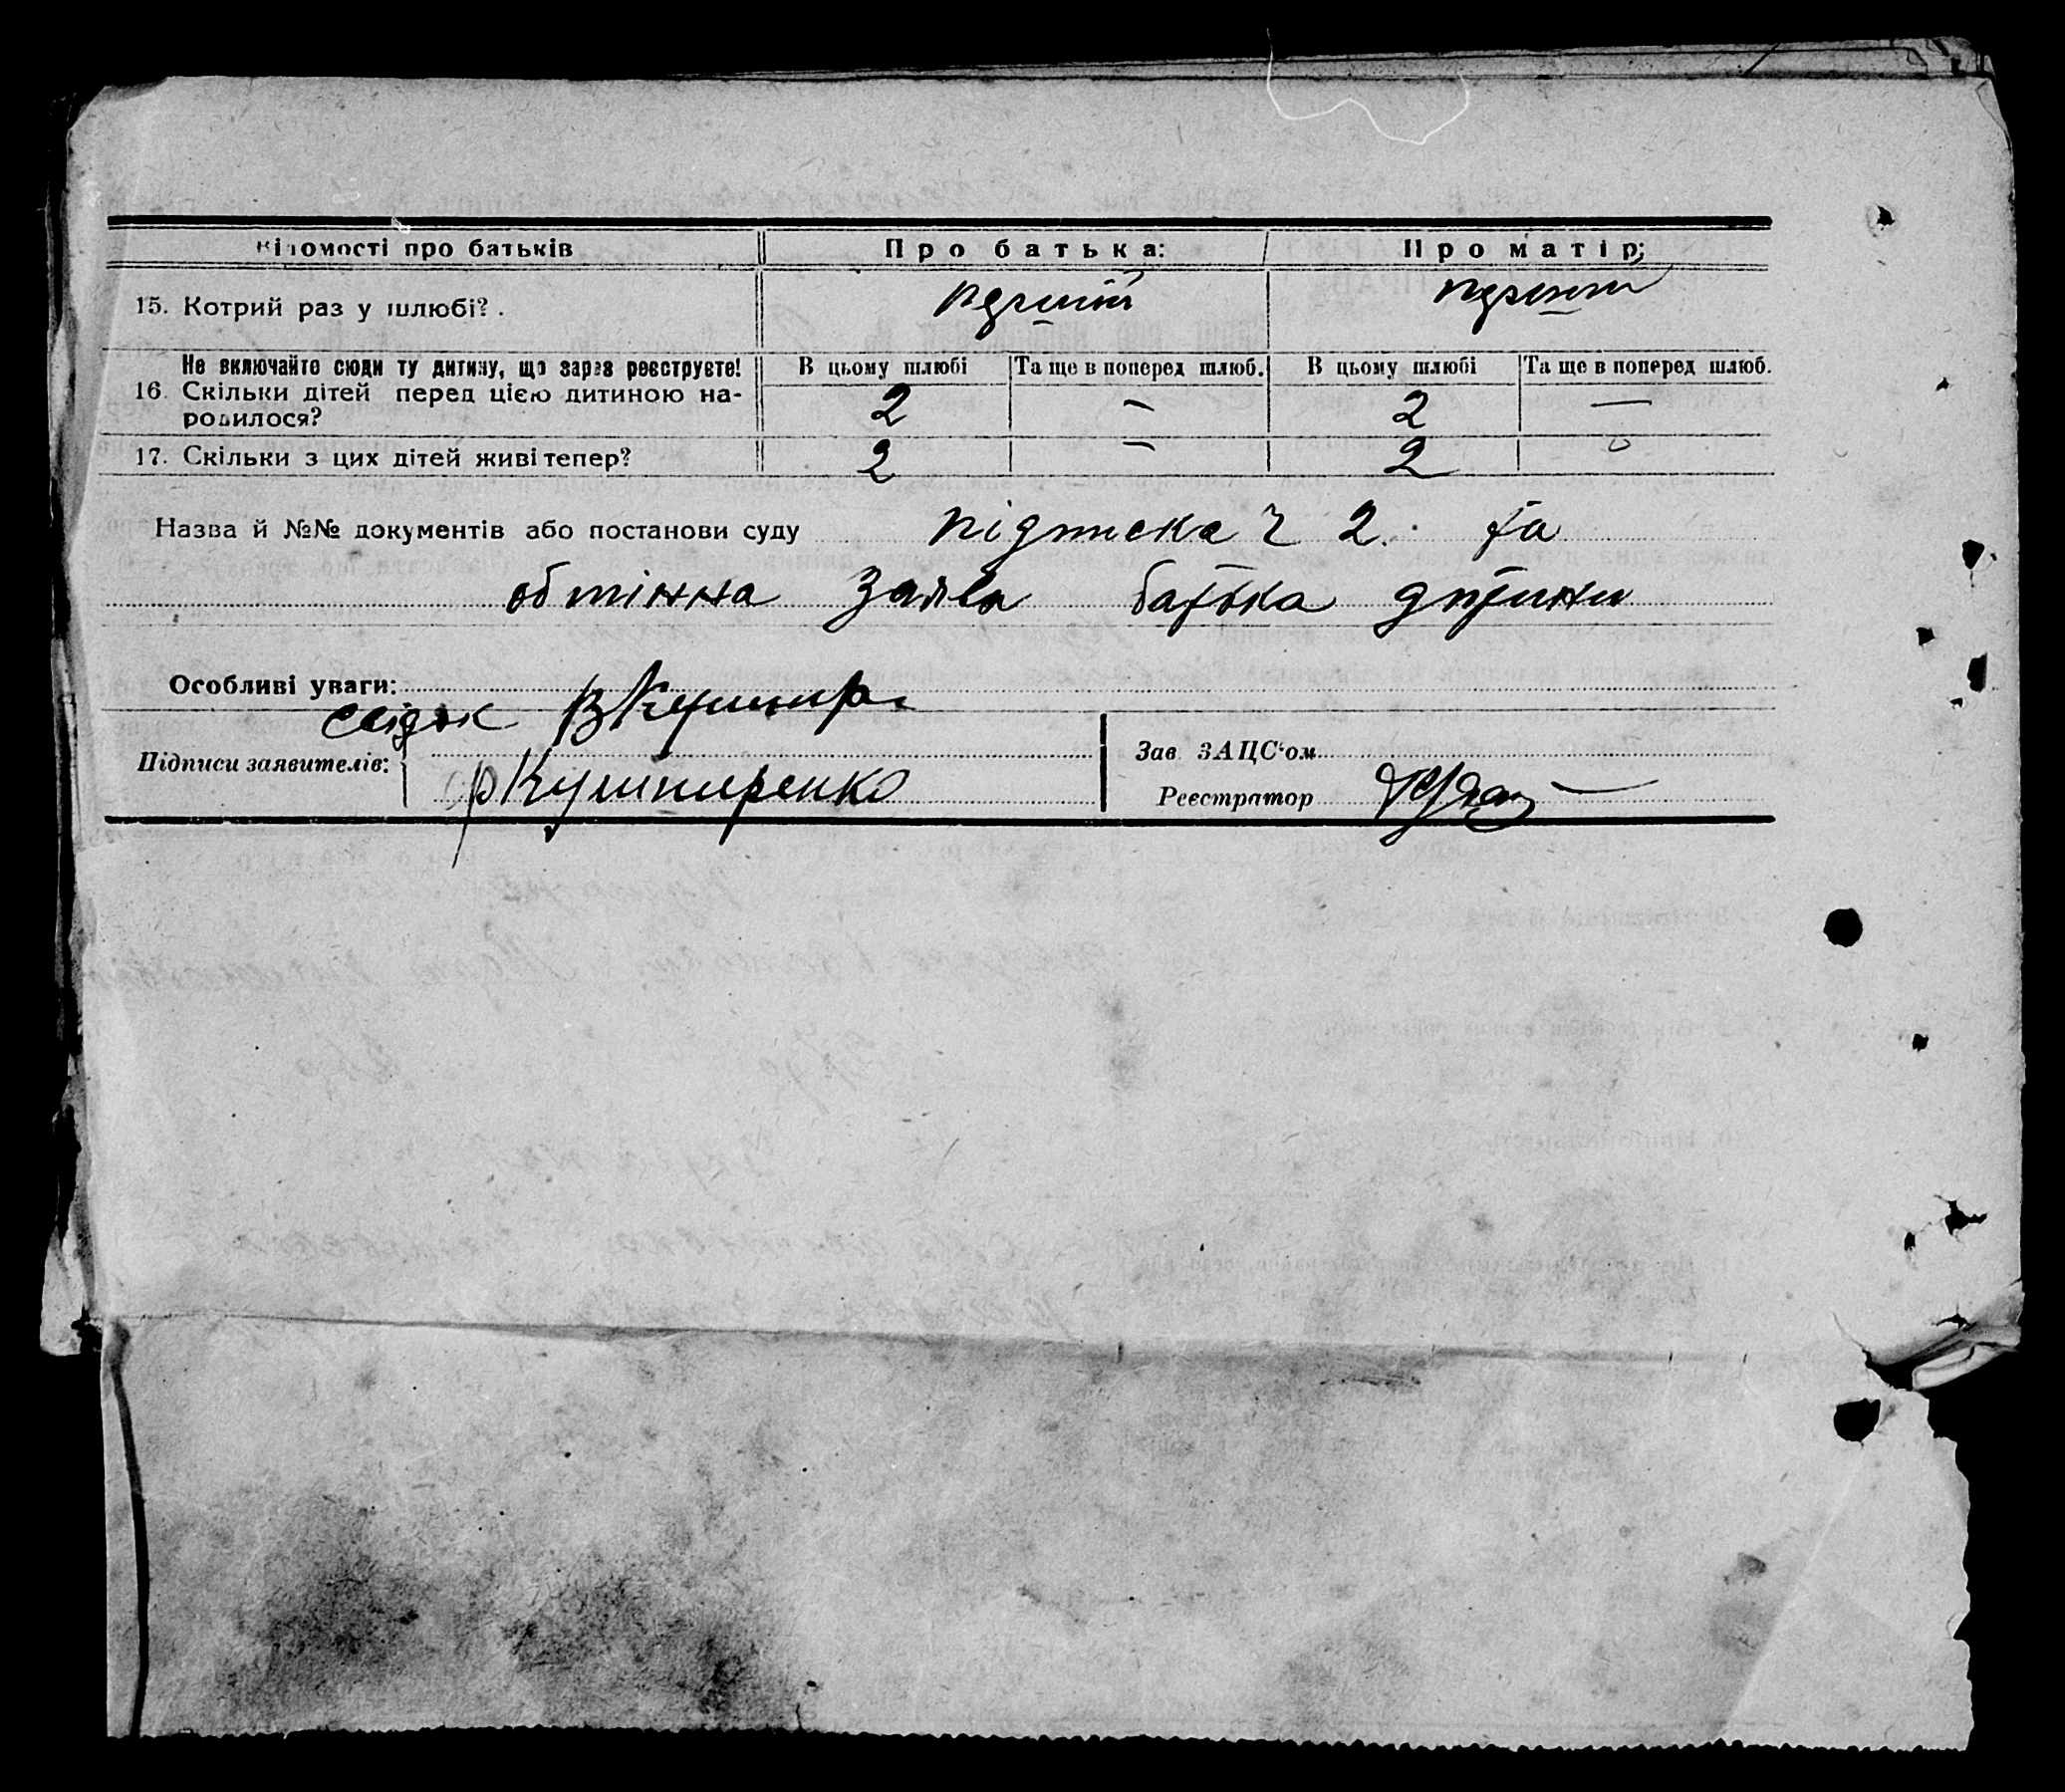 Відомості про батьків Про батька: Про матір:
15. Котрий раз у шлюбі? . перший перший
Не включайте сюди ту дитину, що зараз реєструєте! В цьому шлюбі Та ще в поперед шлюб. В цьому шлюбі Та ще в поперед шлюб.
16. Скільки дітей перед цією дитиною на-
родилося? 2 — 2 —
17. Скільки з цих дітей живі тепер? 2 — 2
Назва й №№ документів або постанови суду підписка Ч 2. та
обмінна заява батька дитини
Особливі уваги:
свідок
Підписи заявителів: Кушниренко
Зав ЗАЦС'ом
Реєстратор